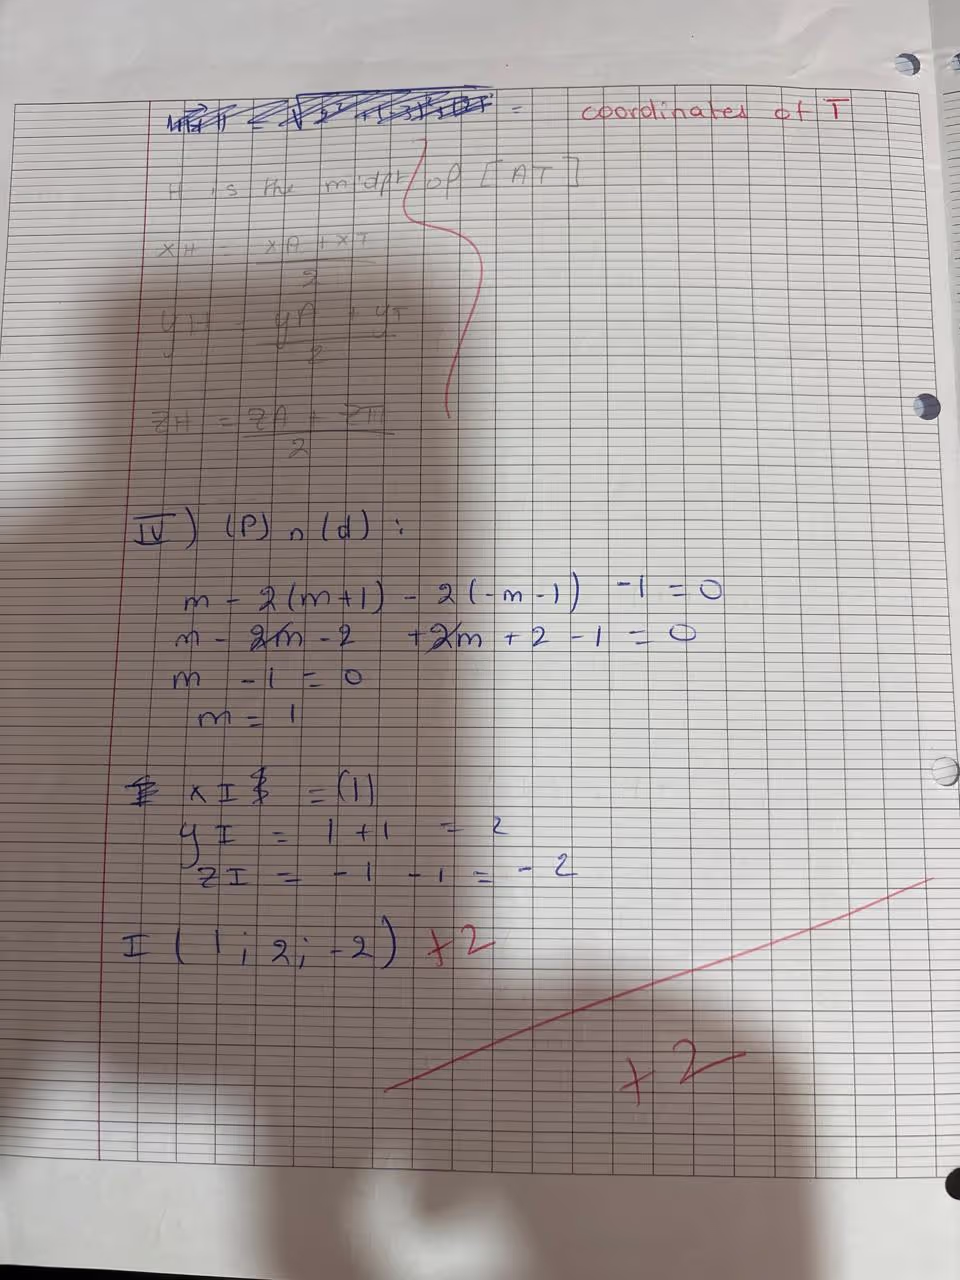 = coordinates of T
H is the midpt of [AT]
xH = xA + xT / 2
yH = yA + yT / 2
zH = zA + zH / 2
IV) (P) ∩ (d) :
m - 2(m+1) - 2(-m-1) -1 = 0
m - 2m - 2 + 2m + 2 - 1 = 0
m - 1 = 0
m = 1
xI = (1)
yI = 1 + 1 = 2
zI = -1 - 1 = -2
I (1; 2; -2) +2
+2